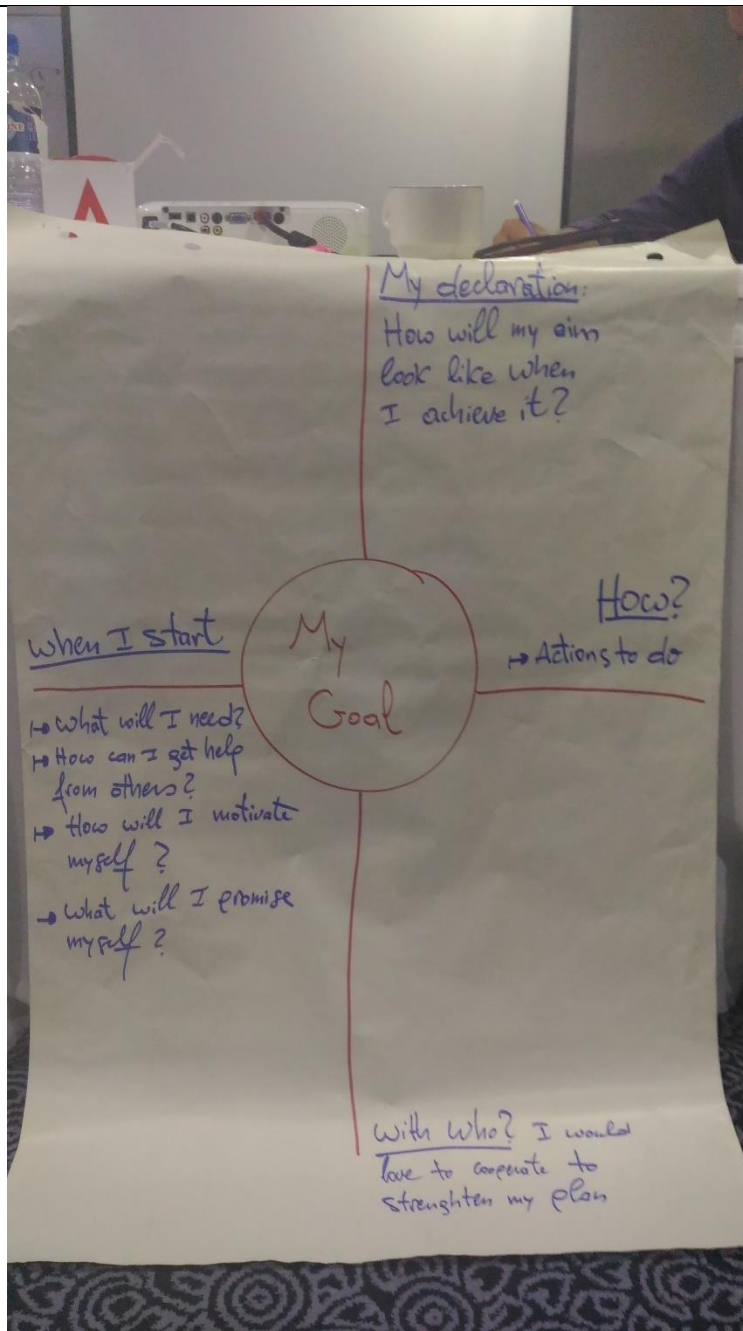 My declaration:
How will my aim
look like when
I achieve it?
How?
↦ Actions to do
My
Goal
when I start
↦ What will I need?
↦ How can I get help
from others?
↦ How will I motivate
myself?
→ What will I promise
myself?
With Who? I would
love to cooperate to
strenghten my plan